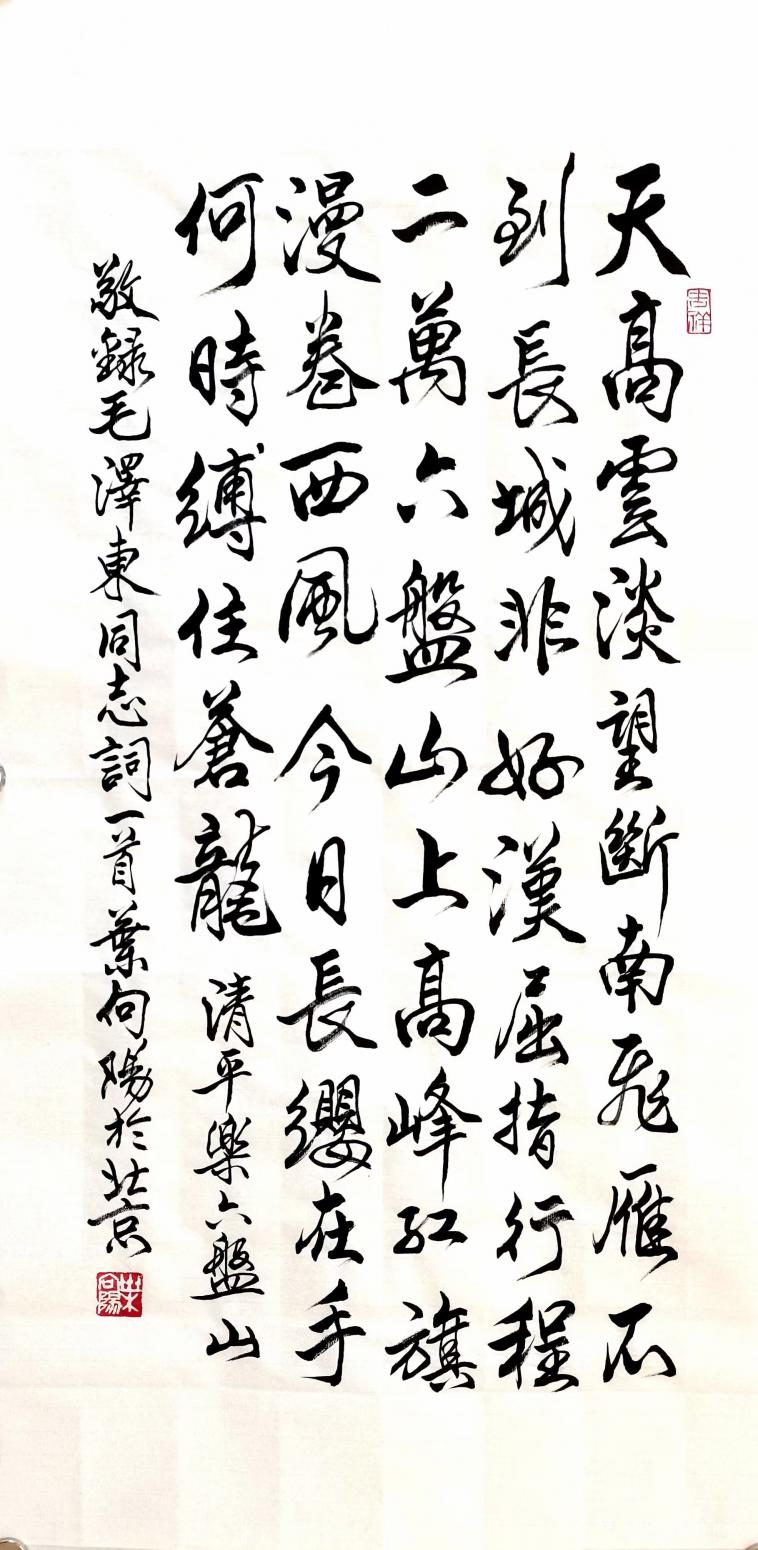 天高雲淡望斷南飛雁不
到長城非好漢屈指行程
二萬六盤山上高峰紅旗
漫卷西風今日長纓在手
何時縛住蒼龍 清平樂六盤山
敬録毛澤東同志詞一首葉向陽於北京
葉向陽